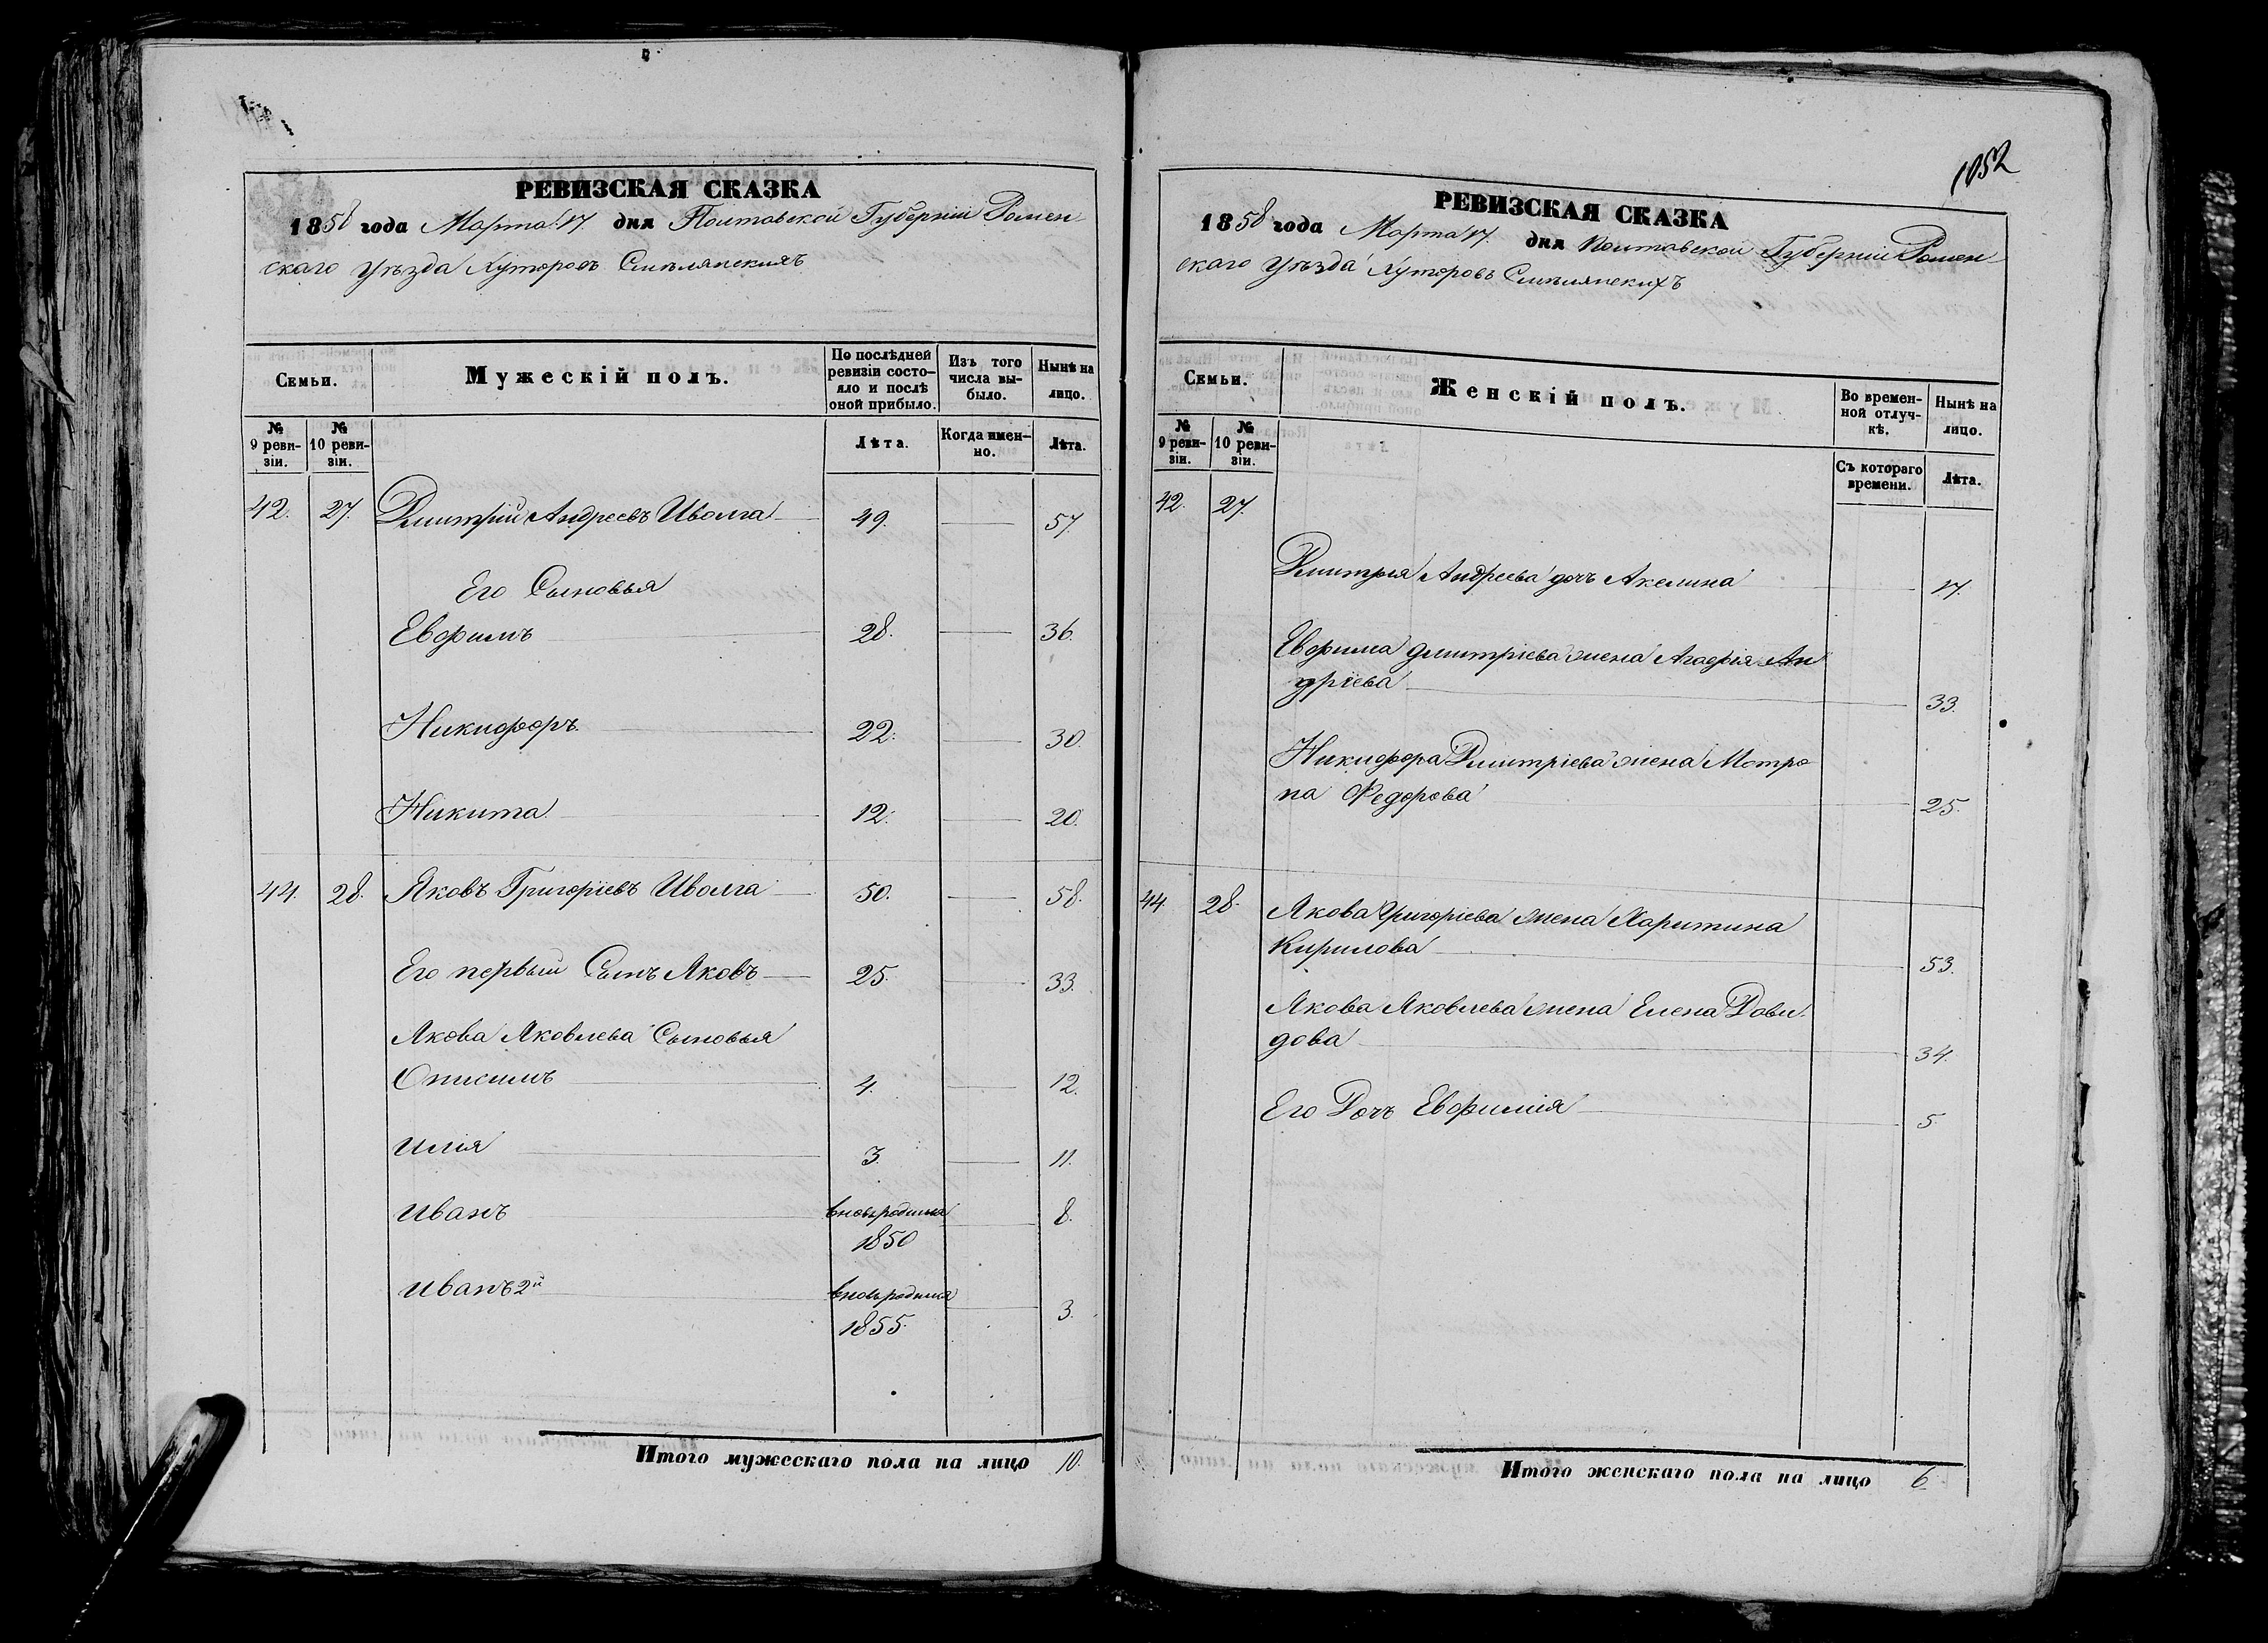 РЕВИЗСКАЯ СКАЗКА
1858 года Марта 17. дня Полтавской Губерніи Ромен
скаго уѣзда Хуторовъ Смѣлянскихъ
Семьи.
Мужескій полъ.
По послѣдней ревизіи состояло и послѣ оной прибыло.
Изъ того числа выбыло.
Нынѣ на лицо.
№ 9 ревизіи.
№ 10 ревизіи.
Лѣта.
Когда именно.
Лѣта.
42. 27. Дмитрій Андреевъ Иволга 49. 57.
Его Сыновья
Евфимъ 28. 36.
Никифоръ. 22. 30.
Никита. 12. 20.
44. 28. Яковъ Григоріевъ Иволга 50. 58.
Его первый Сынъ Яковъ 25. 33.
Якова Яковлева Сыновья
Онисимъ 4. 12.
Илія 3. 11.
Иванъ вновьродился 8.
1850
Иванъ 2й вновьродился 3.
1855.
Итого мужескаго пола на лицо 10.
1052
РЕВИЗСКАЯ СКАЗКА
1858 года Марта 17. дня Полтавской Губерніи Ромен
скаго Уѣзда Хуторовъ Смѣлянскихъ
Семьи.
Женскій полъ.
Во временной отлучкѣ.
Нынѣ на лицо.
№ 9 ревизіи.
№ 10 ревизіи.
Съ котораго времени.
Лѣта.
42. 27.
Дмитрія Андреева дочъ Акелина 17.
Евфима дмитріева жена Агафія Ан
дріева 33.
Никифора Дмитріева жена Мотро
на Федорова 25.
44. 28. Якова Григоріева жена Харитина
Кирилова 53.
Якова Яковлева жена Елена Дави
дова 34.
Его Дочъ Евфимія 5.
Итого женскаго пола на лицо 6